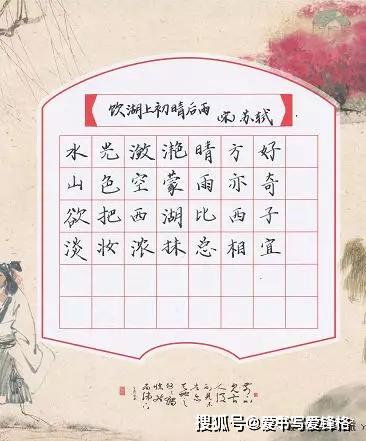 饮湖上初晴后雨 宋 苏轼
水光潋滟晴方好
山色空蒙雨亦奇
欲把西湖比西子
淡妆浓抹总相宜
搜狐号@爱书写爱锋格